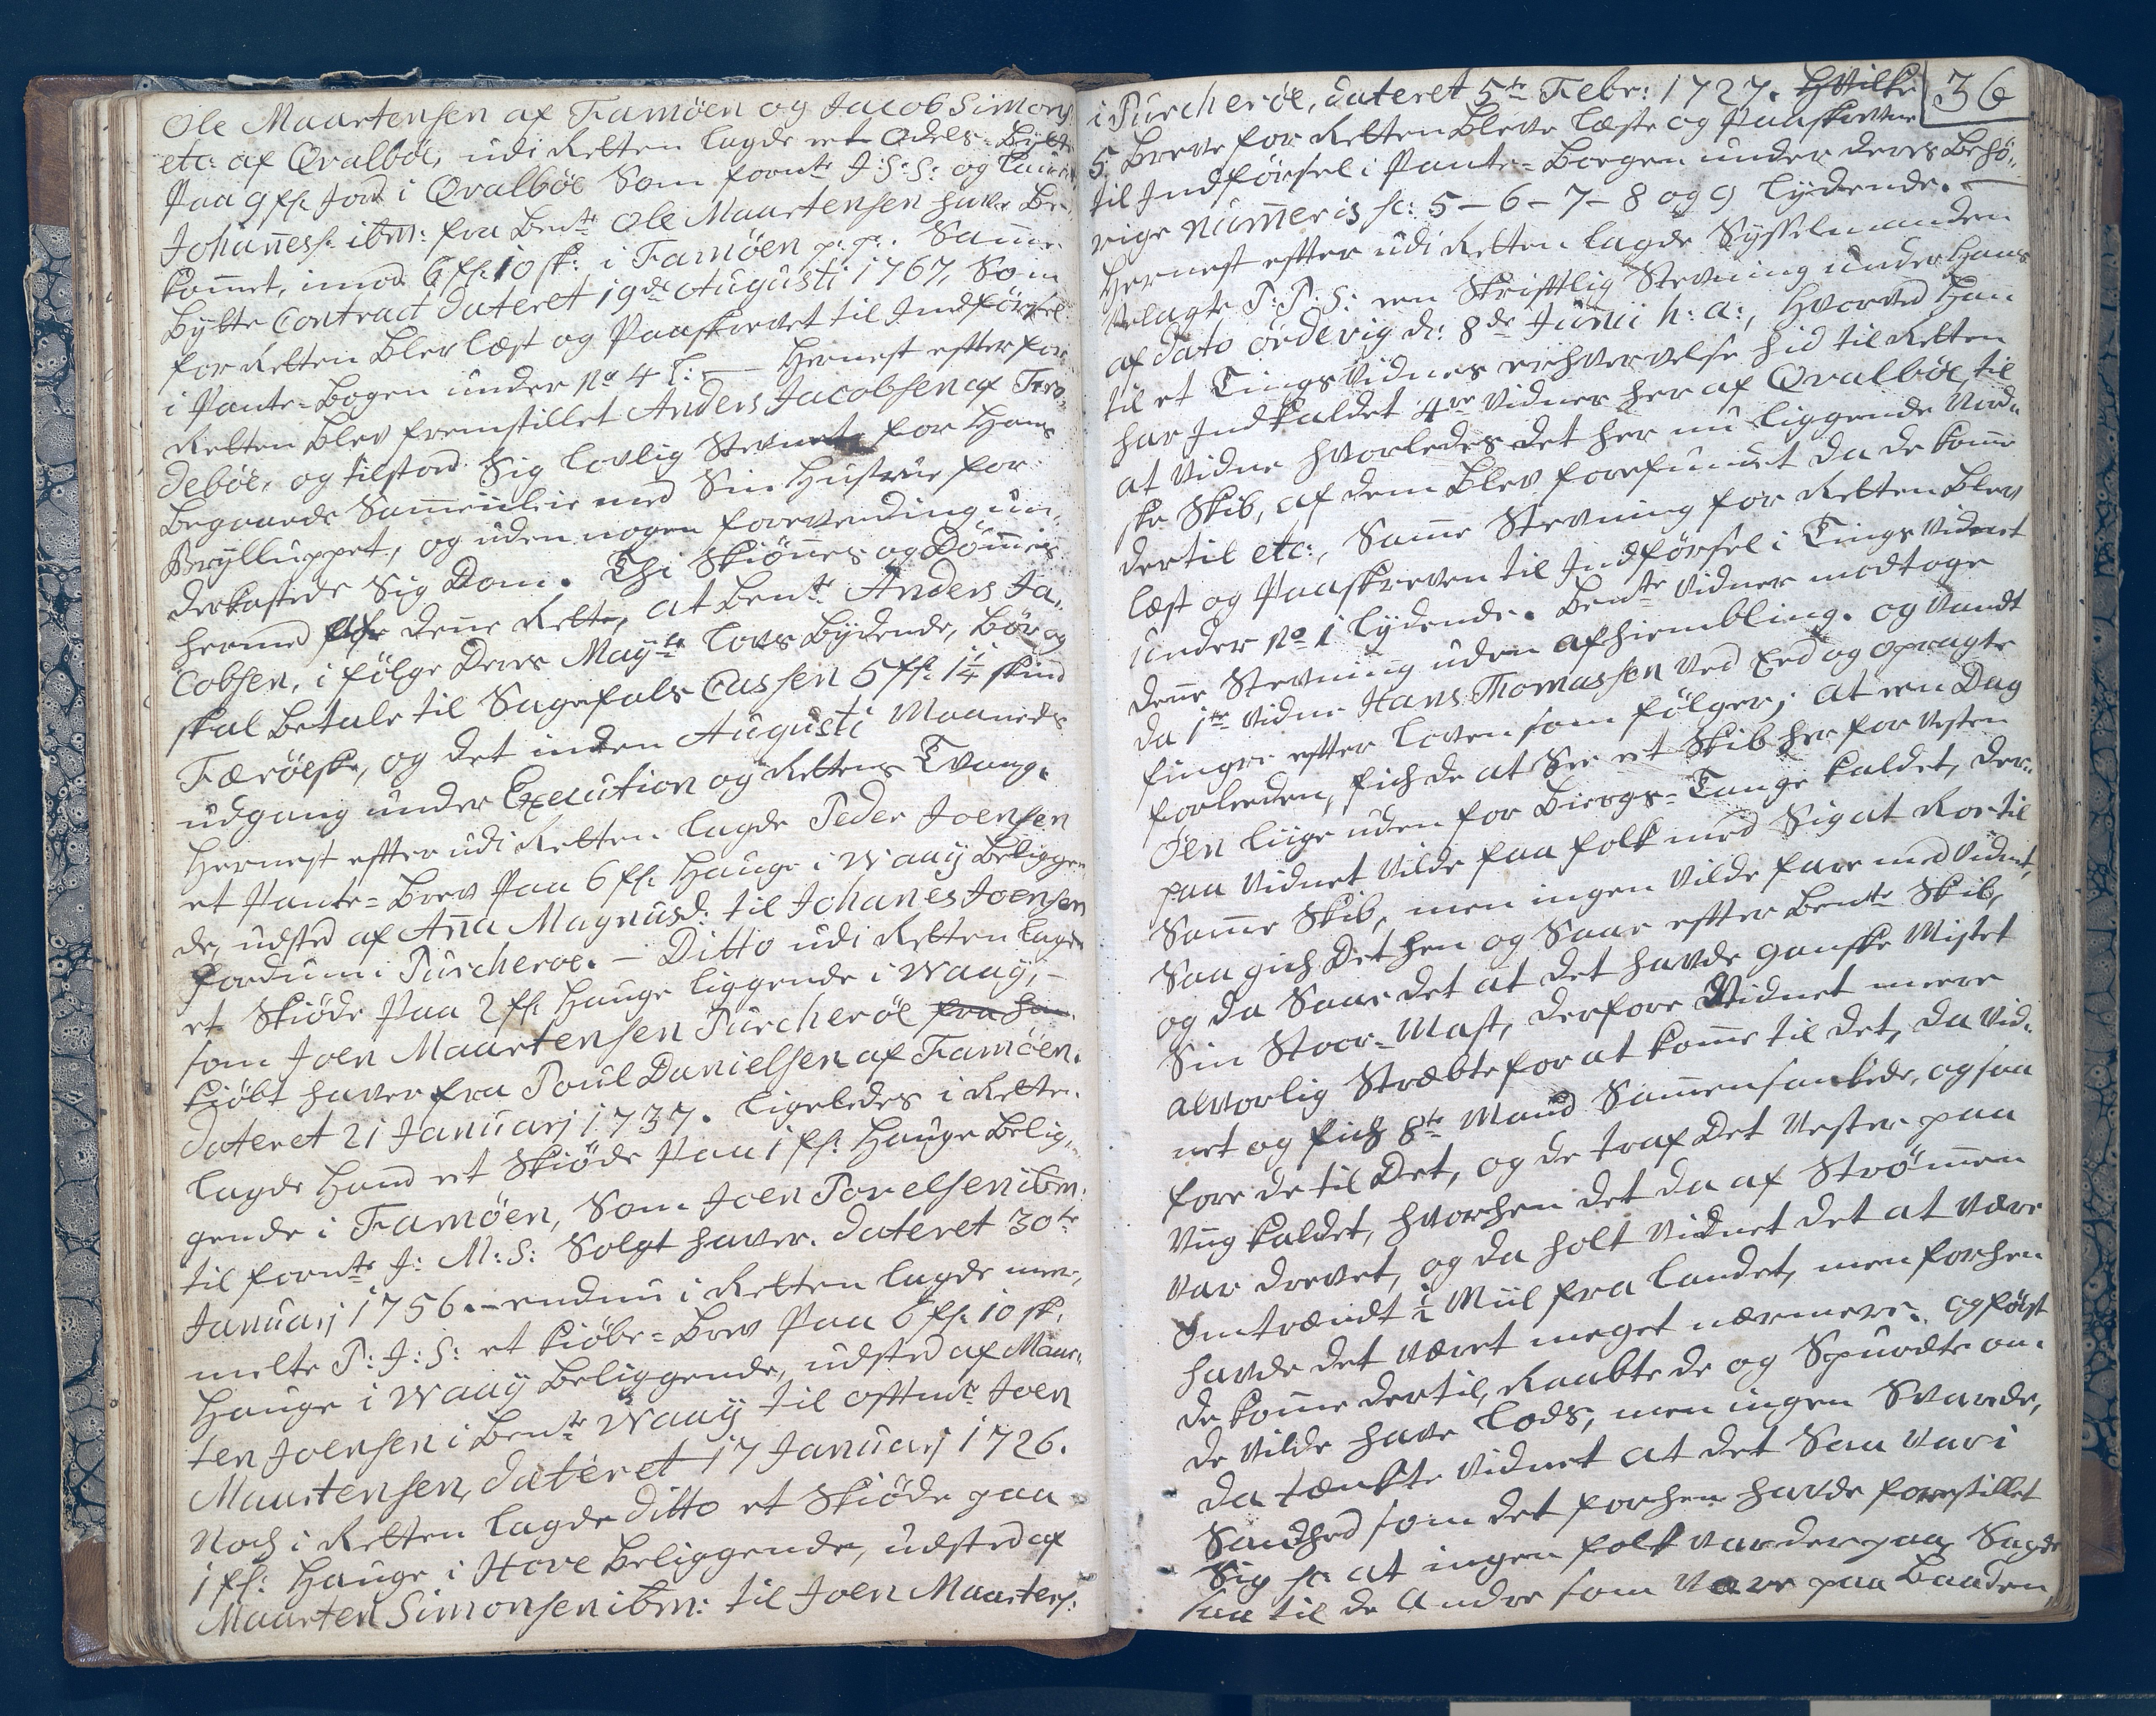 Ole Maartensen af Famöen og Jacob Simons:
etc: af Qvalböe, udi Retten lagde et Odels-Bytte
Paa 9 fl: Jord i Qvalböe Som forn:te J: S: S: og
Johanness: ibm: fra Ben:te Ole Maartensen have Be-
kommet, imod 6 fl: 10 sk: i Famöen p: p: Samme
Bytte Contract dateret 19de Augusti 1767, Som
for Retten Blev læst og Paaskrevet til Indförsel
i Pante-Bogen under No 4 l: — Hernest efter for
Retten Blev fremstillet Anders Jacobsen af Fro-
deböe, og tilstod Sig lovlig Stevnet for Hans
Begaaede Sammenleie med Sin Hustrue for
Brylluppet, og uden nogen forevending un-
derkastede Sig Dom. Thi Skiönnes og Dömmes
hermed for denne Rette, at Ben:te Anders Ja-
cobsen, i fölge Deres May:ts Lovs Bydende, Bör og
skal Betale til Sagefals Cassen 5 fl: 1 1/4 skind
Færöeske, og det inden Augusti Maaneds
udgang under Execution og Rettens Tvang.
Hernest efter udi Retten lagde Peder Joensen
et Pante-Brev Paa 6 fl: Hauge i Waaij Beliggen
de, udsted af Anna Magnusd: til Johanes Joensen
fordum i Purcheröe. — Ditto udi Retten lagde
et Skiöde Paa 2 fl: Hauge liggende i Waaij, —
som Joen Maartensen Purcheröe fra han
kiöbt haver fra Poul Danielsen af Famöen.
dateret 21 Januarj 1737. ligeledes i Rette-
lagde Hand et Skiöde Paa 1 fl: Hauge Belig-
gende i Famöen, Som Joen Povelsen ibm:
til forn:te J: M: S: Solgt haver. dateret 30te
Januarj 1756. — endnu i Retten lagde mer-
melte P: J: S: et kiöbe-Brev Paa 6 fl: 10 sk:
Hauge i Waaij Beliggende, udsted af Maar-
ten Joensen i Ben:te Waaij til offtn:te Joen
Maartensen, dateret 17 Januarj 1726.
Noch i Retten lagde ditto et Skiöde paa
1 fl: Hauge i Hove Beliggende, udsted af
Maarten Simonsen ibm: til Joen Maartens:
i Purcheröe, dateret 5te Febr: 1727. Hvilke
36
5 Breve for Retten Bleve læste og Paaskrevne
til Indförsel i Pante-Boegen under deres Behö-
rige Nummeris sc: 5 - 6 - 7 - 8 og 9 lydende. —
Hernest efter udi Retten lagde Sysselmanden
Velagte P: P: S: een Skrifftlig Stevning under Hans
af dato Ördevig d: 8de Junii h: a:, Hvorved Han
til et Tings Vidnes erhvervelse hid til Retten
har Indkaldet 4re Vidner her af Qvalböe, til
at vidne hvorledes det her nu liggende
ske Skib, af dem Blev forefundet da de komme
dertil etc:, Samme Stevning for Retten Blev
læst og Paaskreven til Indförsel i Tings Vidnet
under No 1 lydende. Ben:te Vidner modtoge
denne Stevning uden afhiembling. og vandt
da 1te Vidne Hans Thomassen ved Eed og opragte
fingre efter Loven som fölger; at een Dag
forleeden, fich de at See et Skib her for Vesten
Öen liige uden for Biergs-Tange kaldet, der-
paa Vidnet vilde faa folk med Sig at Roe til
Samme Skib, men ingen vilde fare med Vidnet,
Saa gich Det hen og Saae efter Ben:te Skib,
og da Saae det at det havde ganske Mistet
Sin Stoer-Mast, derfore Vidnet meere
alvorlig Stræbte for at komme til det, da Vid-
net og fich 8te Mand Sammensankede, og saa
fore de til Det, og de traf Det Vester paa
Viig kaldet, hvorhen det da af Strömmen
var drevet, og da holt Vidnet det at være
omtrendt 1/2 Miil fra Landet, men forhen
havde det været meget nærmere. og först
de komme dertil, Raabte de og Spurdte om
de vilde have Lods, men ingen Svarede,
da tænkte Vidnet at det Saa var i
Sandhed som det forhen havde forestillet
Sig sc: at ingen folk var derpaa, Sagde
saa til de Andre som vare paa Baaden